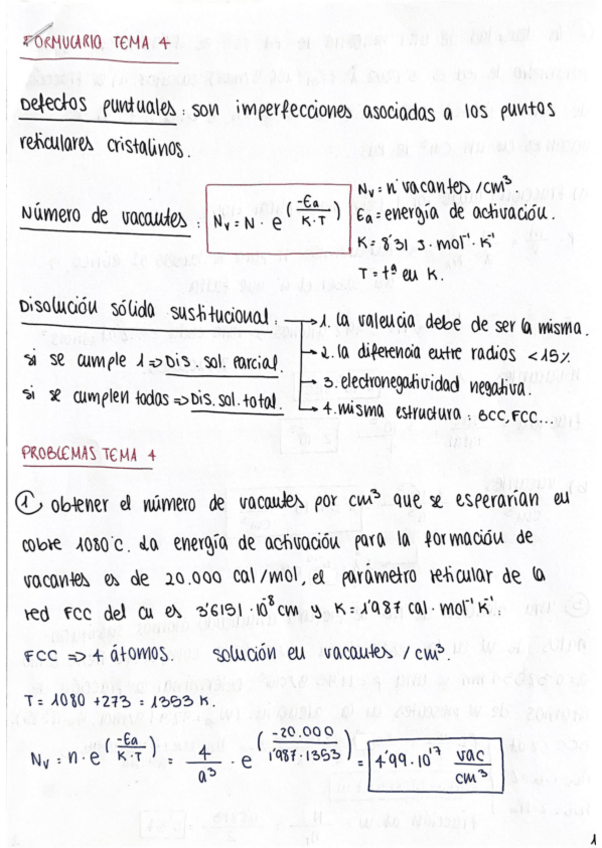 FORMULARIO TEMA 4
Defectos puntuales: son imperfecciones asociadas a los puntos
reticulares cristalinos.
Número de vacantes: Nv = N · e^(-Ea / K·T)
Nv = nº vacantes /cm³.
Ea = energía de activación.
K = 8'31 J·mol⁻¹·K⁻¹
T = tª en K.
Disolución sólida sustitucional:
si se cumple 1 => Dis. sol. Parcial.
si se cumplen todas => Dis. sol. total.
1. la valencia debe de ser la misma.
2. la diferencia entre radios <15%
3. electronegatividad negativa.
4. misma estructura: BCC, FCC...
PROBLEMAS TEMA 4
1 obtener el número de vacantes por cm³ que se esperarían en
cobre 1080°C. La energía de activación para la formación de
vacantes es de 20.000 cal/mol, el parámetro reticular de la
red FCC del Cu es 3'6151·10⁻⁸ cm y K = 1'987 cal·mol⁻¹K⁻¹.
FCC => 4 átomos. solución en vacantes / cm³.
T = 1080 + 273 = 1353 K.
Nv = n · e^(-Ea / K·T) = 4 / a³ · e^(-20.000 / 1'987·1353) = 4.99·10¹⁹ vac / cm³
1